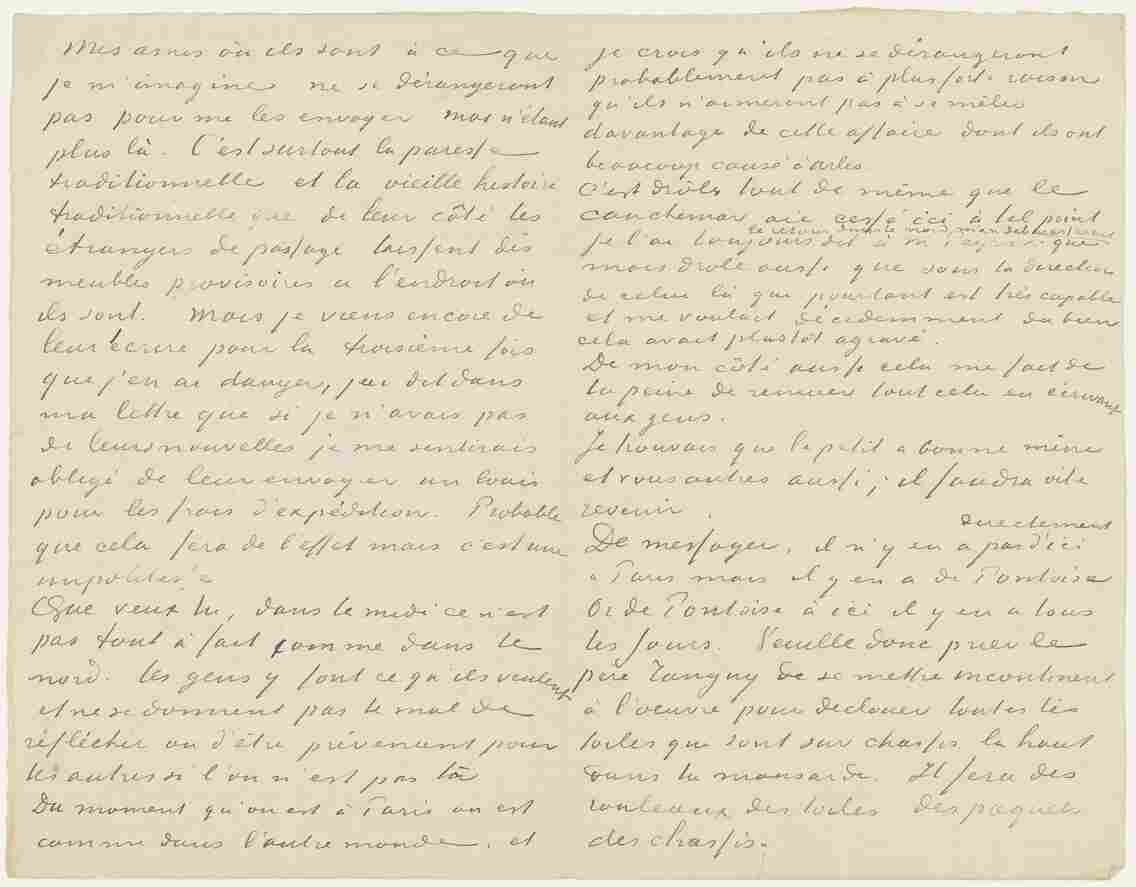 Mes amis où ils sont à ce que
je m'imagine ne se dérangeront
pas pour me les envoyer moi n'étant
plus là. C'est surtout la paresse
traditionnelle et la vieille histoire
traditionnelle que de leur côté les
étrangers de passage laissent des
meubles provisoires à l'endroit où
ils sont. Mais je viens encore de
leur écrire pour la troisième fois
que j'en ai danger, j'ai dit dans
ma lettre que si je n'avais pas
de leurs nouvelles je me sentirais
obligé de leur envoyer un louis
pour les frais d'expédition. Probable
que cela fera de l'effet mais c'est une
impolitesse
Que veux tu, dans le midi ce n'est
pas tout à fait comme dans le
nord. les gens y font ce qu'ils veulent
et ne se donnent pas le mal de
réfléchir ou d'être prévenant pour
les autres si l'on n'est pas là
Du moment qu'on est à Paris on est
comme dans l'autre monde. et
je crois qu'ils ne se dérangeront
probablement pas à plus forte raison
qu'ils n'aimeront pas à se mêler
davantage de cette affaire dont ils ont
beaucoup causé à arles.
C'est drôle tout de même que le
cauchemar aie cessé ici à tel point
le retour dans le nord m'en
je l'ai toujours dit à M. Peyron que
mais drôle aussi que sous la direction
de celui là que pourtant est très capable
et me voulait décidemment du bien
cela avait plustôt agravé.
De mon côté aussi cela me fait de
la peine de remuer tout cela en écrivant
aux gens.
Je trouvais que le petit a bonne mine
et vous autres aussi; il faudra vite
revenir.
directement
De messager, il n'y en a pas d'ici
a Paris mais il y en a de Pontoise
Or de Pontoise à ici il y en a tous
les jours. Veuille donc prier le
père Tanguy de se mettre incontinent
à l'oeuvre pour declouer toutes les
toiles que sont sur chassis la haut
dans la mansarde. Il fera des
rouleaux des toiles des paquets
des chassis.